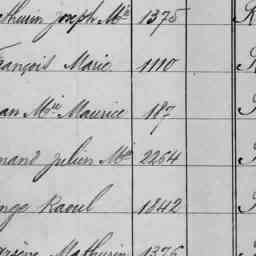 thurin Joseph Mie 1375
rançois Marie 1110
an Mie Maurice 1187
mand Julien Mie 2264
nge Raoul 1842
arsène Mathurin 1376